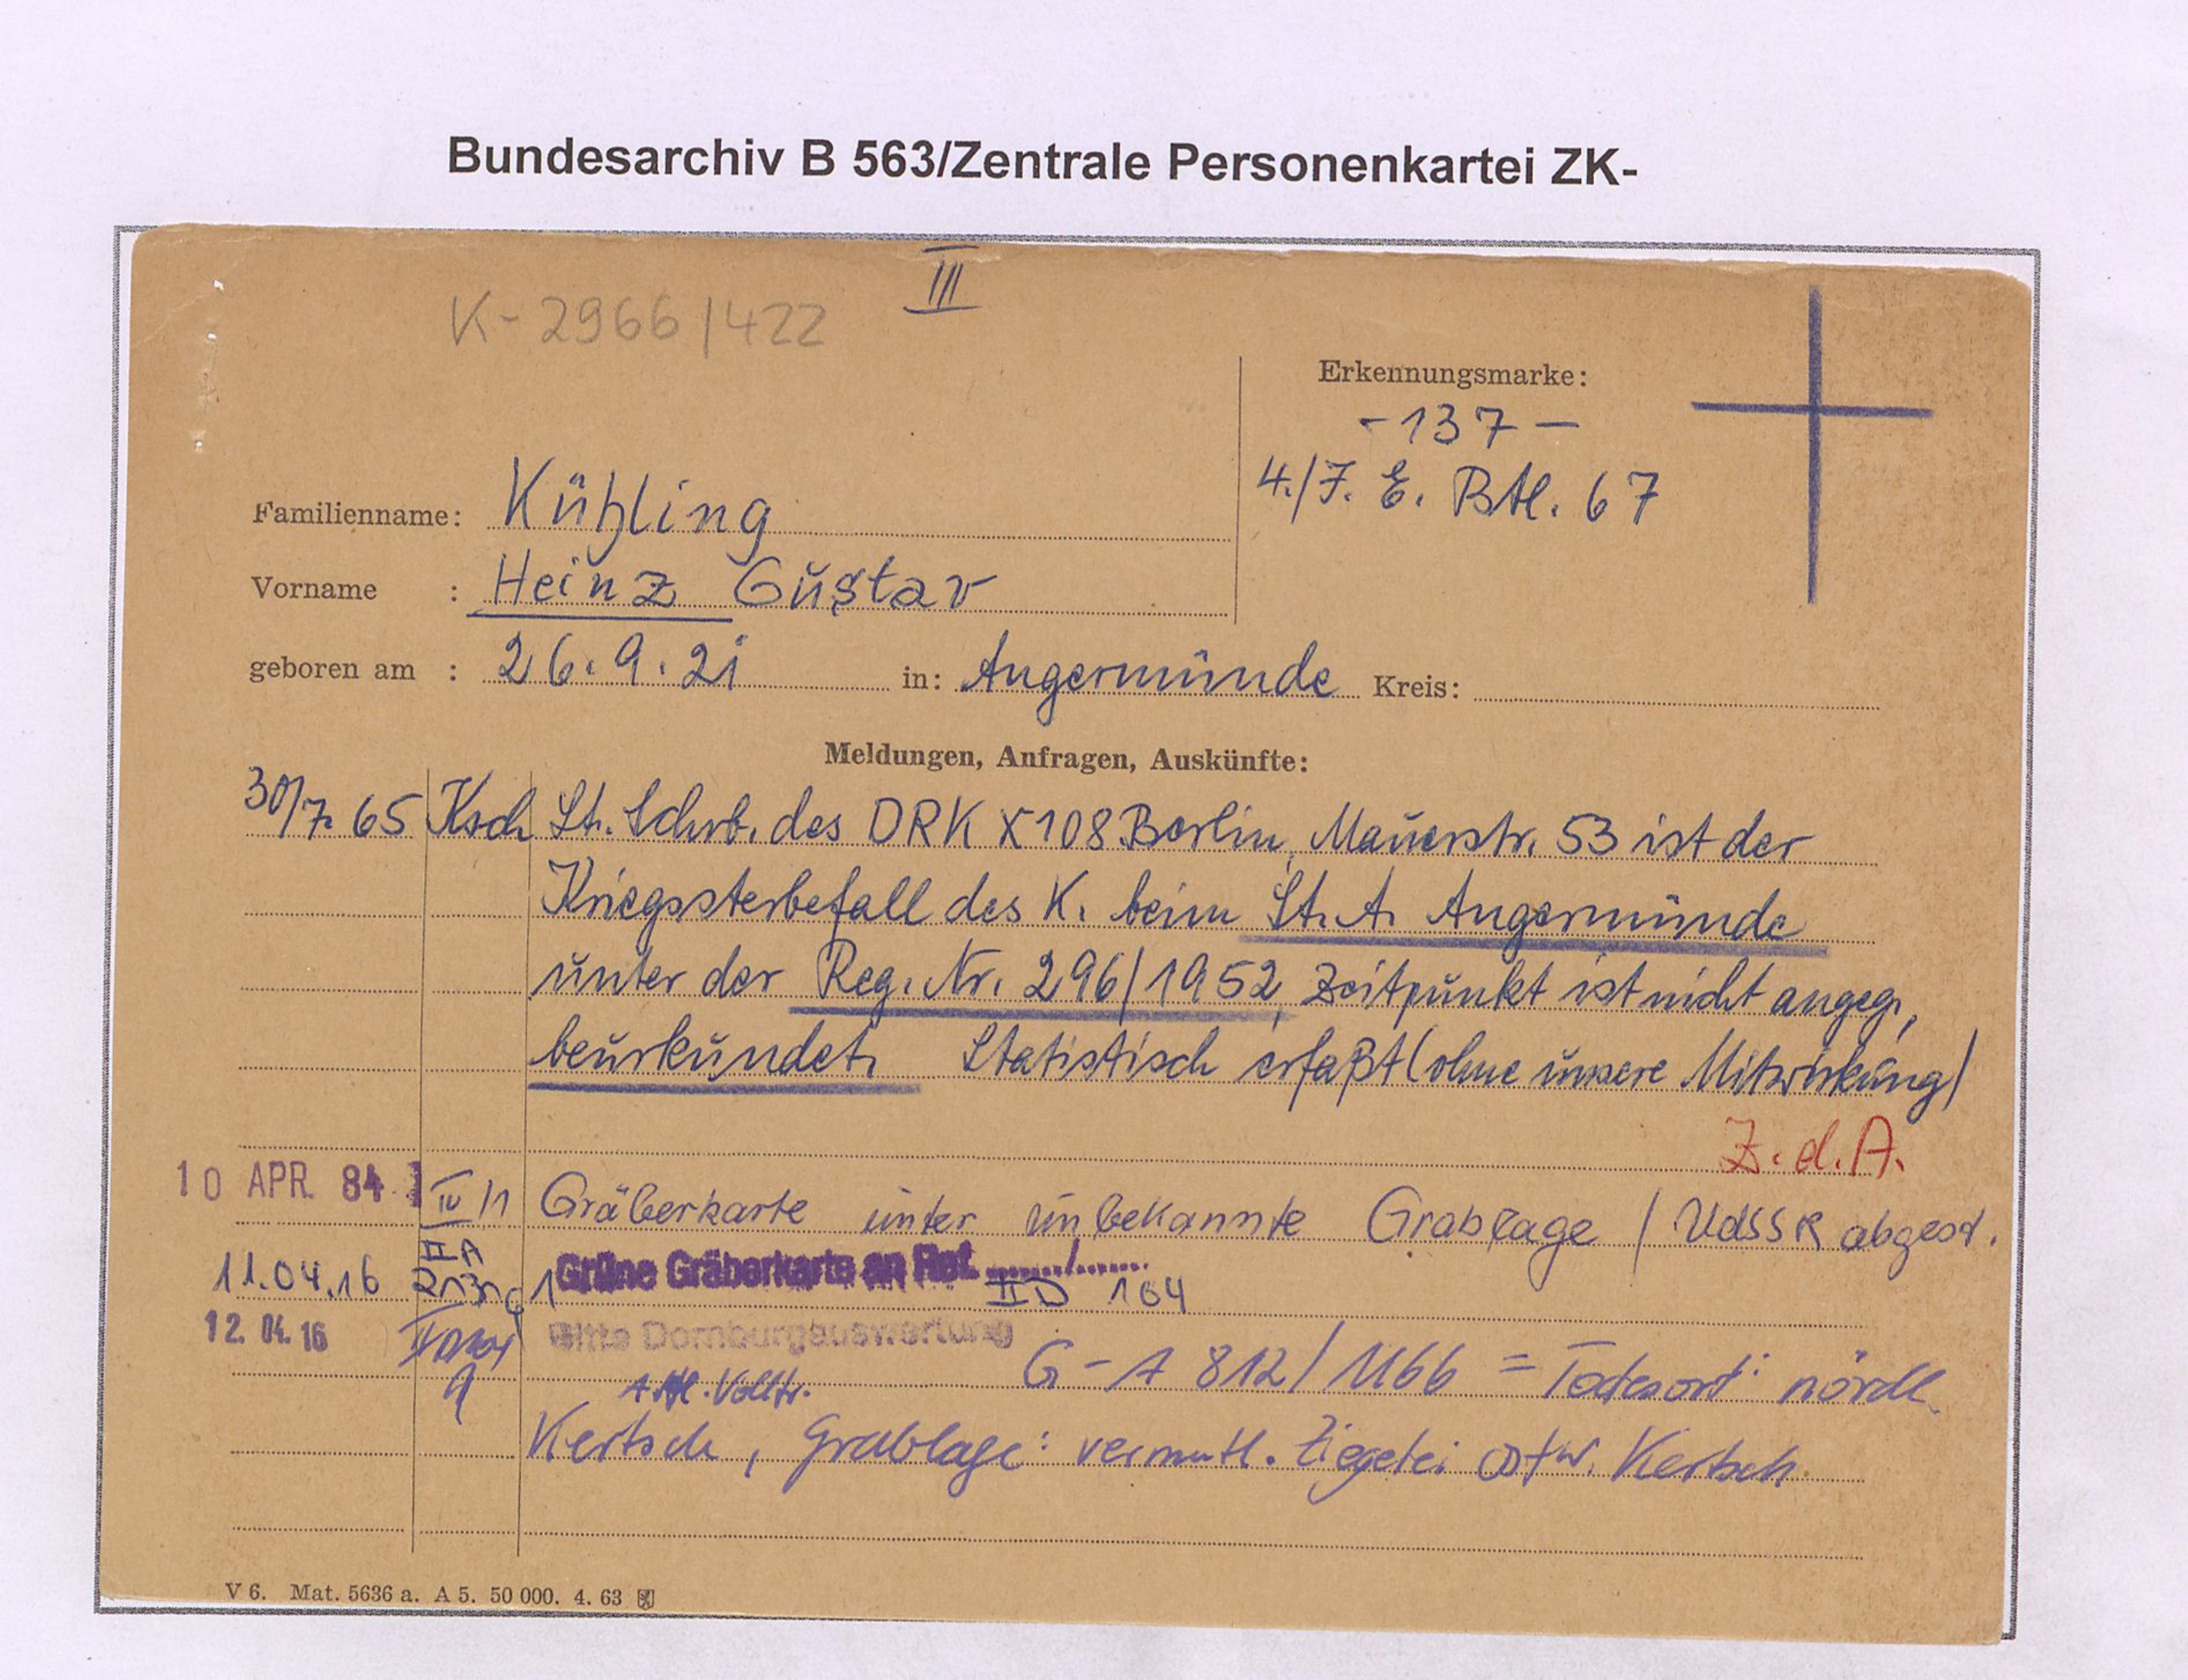 Bundesarchiv B 563/Zentrale Personenkartei ZK-
III
K-2966/422
Erkennungsmarke:
-137-
4./J. E. Btl. 67
Familienname: Kühling
Vorname : Heinz Gustav
geboren am : 26.9.21 in: Angermünde Kreis:
Meldungen, Anfragen, Auskünfte:
30/7. 65 Ksch Lt. Schrb. des DRK X 108 Berlin, Mauerstr. 53 ist der
Kriegssterbefall des K. beim St. A. Angermünde
unter der Reg. Nr. 296/1952, Zeitpunkt ist nicht angeg.,
beurkundet. Statistisch erfaßt (ohne unsere Mitwirkung)
Z. d. A.
10 APR. 84 IV/1 Gräberkarte unter unbekannte Grablage / UdSSR abgest.
11.04.16 II A Grüne Gräberkarte an Ref. ......../........
II D 164
12. 04. 16 Bitte Dornburgauswertung
G-A 812/1166 = Todesort: nördl.
Kertsch, Grablage: vermutl. Ziegelei ostw. Kertsch.
V 6. Mat. 5636 a. A 5. 50 000. 4. 63